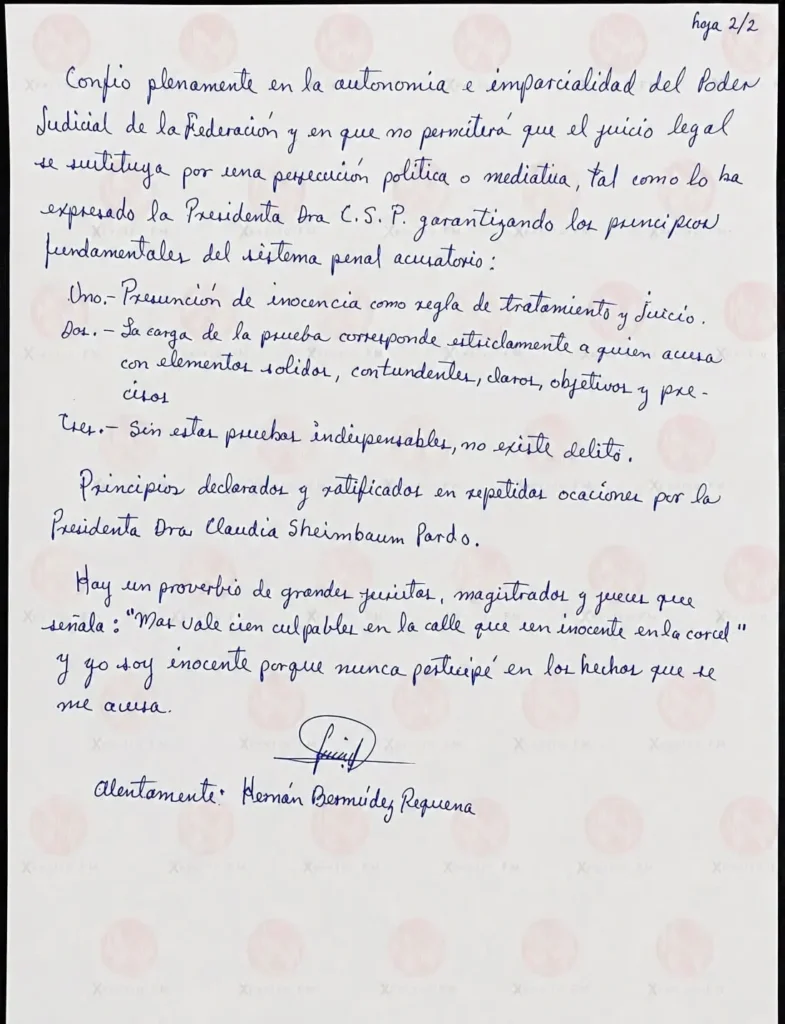 hoja 2/2
Confio plenamente en la autonomía e imparcialidad del Poder
Judicial de la Federación y en que no permitirá que el juicio legal
se sustituya por una persecución política o mediatica, tal como lo ha
expresado la Presidenta Dra C.S.P. garantizando los principios
fundamentales del sistema penal acusatorio:
Uno.- Presunción de inocencia como regla de tratamiento y Juicio.
Dos.- La carga de la prueba corresponde estrictamente a quien acusa
con elementos solidos, contundentes, claros, objetivos y pre-
cisos
Tres.- Sin estas pruebas indispensables, no existe delito.
Principios declarados y ratificados en repetidas ocaciones por la
Presidenta Dra Claudia Sheimbaum Pardo.
Hay un proverbio de grandes juristas, magistrados y jueces que
señala: "Mas vale cien culpables en la calle que un inocente en la carcel"
y yo soy inocente porque nunca participé en los hechos que se
me acusa.
Atentamente: Hernán Bermúdez Requena